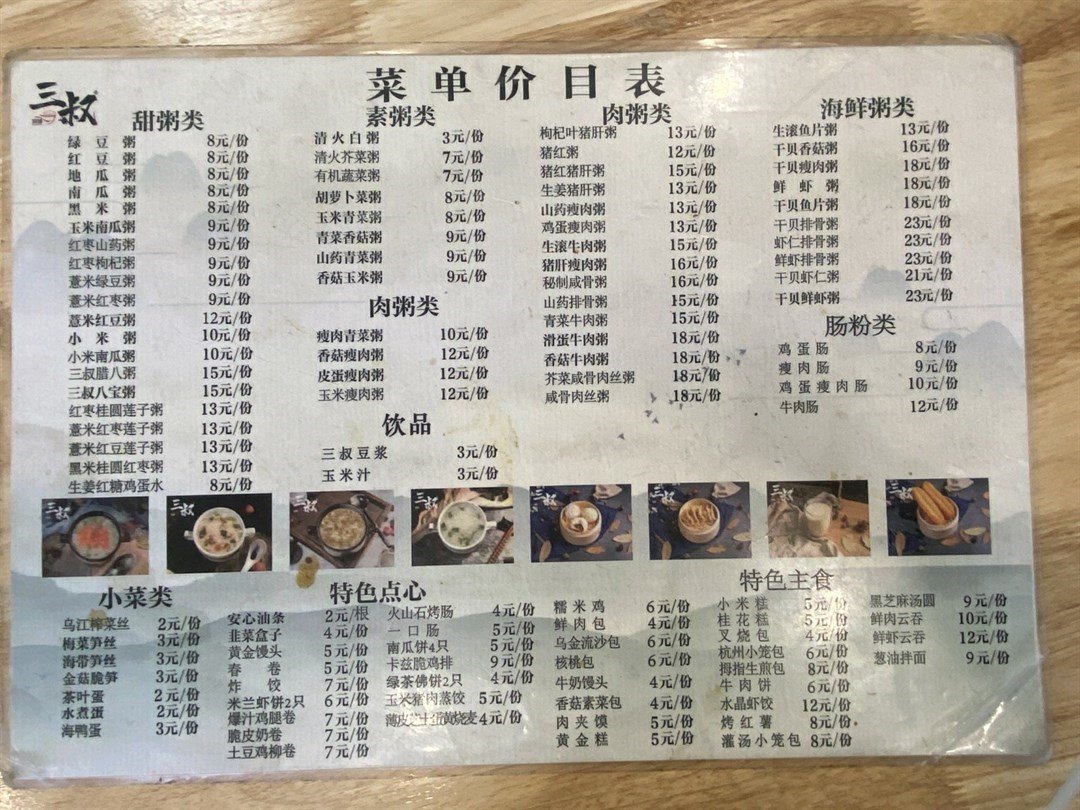 三叔
菜单价目表
甜粥类
绿豆粥 8元/份
红豆粥 8元/份
地瓜粥 8元/份
南瓜粥 8元/份
黑米粥 8元/份
玉米南瓜粥 9元/份
红枣山药粥 9元/份
红枣枸杞粥 9元/份
薏米绿豆粥 9元/份
薏米红枣粥 9元/份
薏米红豆粥 12元/份
小米粥 10元/份
小米南瓜粥 10元/份
三叔腊八粥 15元/份
三叔八宝粥 15元/份
红枣桂圆莲子粥 13元/份
薏米红枣莲子粥 13元/份
薏米红豆莲子粥 13元/份
黑米桂圆红枣粥 13元/份
生姜红糖鸡蛋水 8元/份
素粥类
清火白粥 3元/份
清火芥菜粥 7元/份
有机蔬菜粥 7元/份
胡萝卜菜粥 8元/份
玉米青菜粥 8元/份
青菜香菇粥 9元/份
山药青菜粥 9元/份
香菇玉米粥 9元/份
肉粥类
瘦肉青菜粥 10元/份
香菇瘦肉粥 12元/份
皮蛋瘦肉粥 12元/份
玉米瘦肉粥 12元/份
饮品
三叔豆浆 3元/份
玉米汁 3元/份
肉粥类
枸杞叶猪肝粥 13元/份
猪红粥 12元/份
猪红猪肝粥 15元/份
生姜猪肝粥 13元/份
山药瘦肉粥 13元/份
鸡蛋瘦肉粥 13元/份
生滚牛肉粥 15元/份
猪肝瘦肉粥 16元/份
秘制咸骨粥 16元/份
山药排骨粥 15元/份
青菜牛肉粥 15元/份
滑蛋牛肉粥 18元/份
香菇牛肉粥 18元/份
芥菜咸骨肉丝粥 18元/份
咸骨肉丝粥 18元/份
海鲜粥类
生滚鱼片粥 13元/份
干贝香菇粥 16元/份
干贝瘦肉粥 18元/份
鲜虾粥 18元/份
干贝鱼片粥 18元/份
干贝排骨粥 23元/份
虾仁排骨粥 23元/份
鲜虾排骨粥 23元/份
干贝虾仁粥 21元/份
干贝鲜虾粥 23元/份
肠粉类
鸡蛋肠 8元/份
瘦肉肠 9元/份
鸡蛋瘦肉肠 10元/份
牛肉肠 12元/份
三叔
三叔
三叔
三叔
三叔
三叔
三叔
三叔
小菜类
乌江榨菜丝 2元/份
梅菜笋丝 3元/份
海带笋丝 3元/份
金菇脆笋 3元/份
茶叶蛋 2元/份
水煮蛋 2元/份
海鸭蛋 3元/份
特色点心
安心油条 2元/根
韭菜盒子 4元/份
黄金馒头 5元/份
春卷 5元/份
炸饺 7元/份
米兰虾饼2只 6元/份
爆汁鸡腿卷 7元/份
脆皮奶卷 7元/份
土豆鸡柳卷 7元/份
火山石烤肠 4元/份
一口肠 5元/份
南瓜饼4只 5元/份
卡兹脆鸡排 9元/份
绿茶佛饼2只 4元/份
玉米猪肉蒸饺 5元/份
薄皮芝士蛋黄烧麦 4元/份
特色主食
糯米鸡 6元/份
鲜肉包 4元/份
乌金流沙包 6元/份
核桃包 6元/份
牛奶馒头 4元/份
香菇素菜包 4元/份
肉夹馍 5元/份
黄金糕 5元/份
小米糕 5元/份
桂花糕 5元/份
叉烧包 4元/份
杭州小笼包 6元/份
拇指生煎包 8元/份
牛肉饼 6元/份
水晶虾饺 12元/份
烤红薯 8元/份
灌汤小笼包 8元/份
黑芝麻汤圆 9元/份
鲜肉云吞 10元/份
鲜虾云吞 12元/份
葱油拌面 9元/份